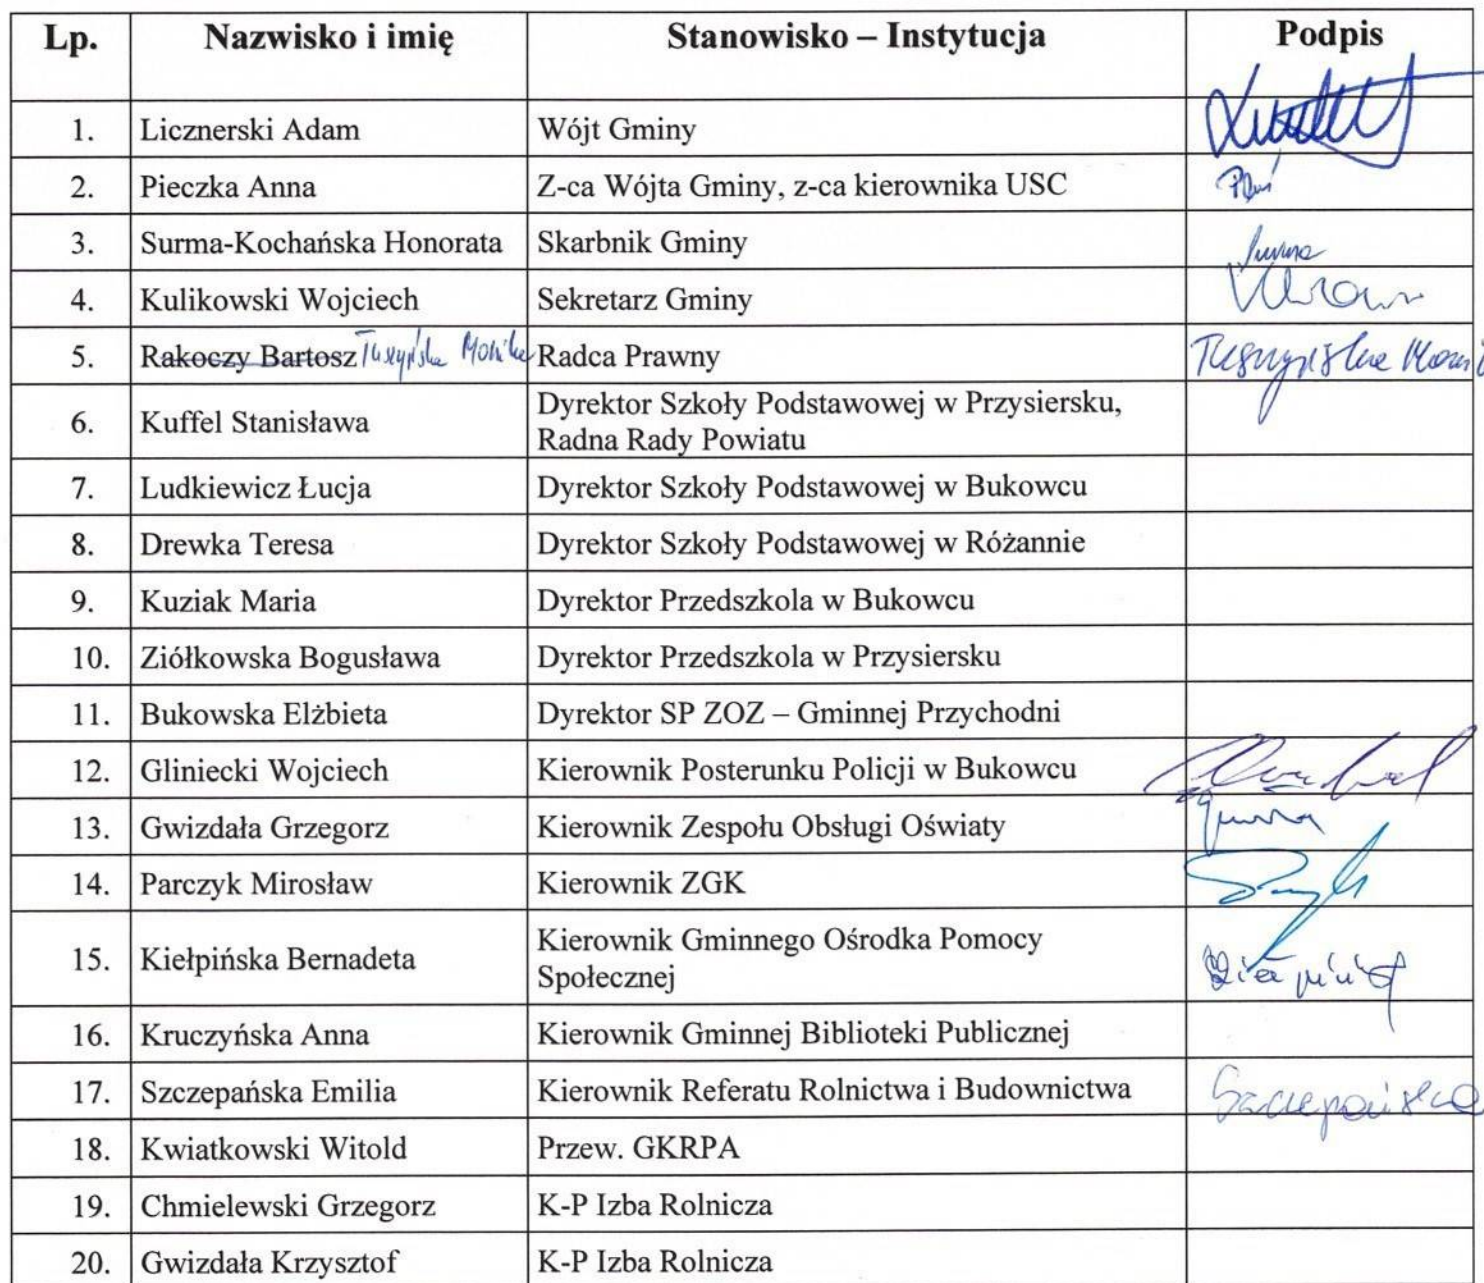 Lp. Nazwisko i imię Stanowisko – Instytucja Podpis
1. Licznerski Adam Wójt Gminy
2. Pieczka Anna Z-ca Wójta Gminy, z-ca kierownika USC
3. Surma-Kochańska Honorata Skarbnik Gminy Surma
4. Kulikowski Wojciech Sekretarz Gminy
5. Rakoczy Bartosz Tuszyńska Monika Radca Prawny Tuszyńska Moni
6. Kuffel Stanisława Dyrektor Szkoły Podstawowej w Przysiersku,
Radna Rady Powiatu
7. Ludkiewicz Łucja Dyrektor Szkoły Podstawowej w Bukowcu
8. Drewka Teresa Dyrektor Szkoły Podstawowej w Różannie
9. Kuziak Maria Dyrektor Przedszkola w Bukowcu
10. Ziółkowska Bogusława Dyrektor Przedszkola w Przysiersku
11. Bukowska Elżbieta Dyrektor SP ZOZ – Gminnej Przychodni
12. Gliniecki Wojciech Kierownik Posterunku Policji w Bukowcu
13. Gwizdała Grzegorz Kierownik Zespołu Obsługi Oświaty
14. Parczyk Mirosław Kierownik ZGK
15. Kiełpińska Bernadeta Kierownik Gminnego Ośrodka Pomocy
Społecznej
16. Kruczyńska Anna Kierownik Gminnej Biblioteki Publicznej
17. Szczepańska Emilia Kierownik Referatu Rolnictwa i Budownictwa Szczepańska
18. Kwiatkowski Witold Przew. GKRPA
19. Chmielewski Grzegorz K-P Izba Rolnicza
20. Gwizdała Krzysztof K-P Izba Rolnicza